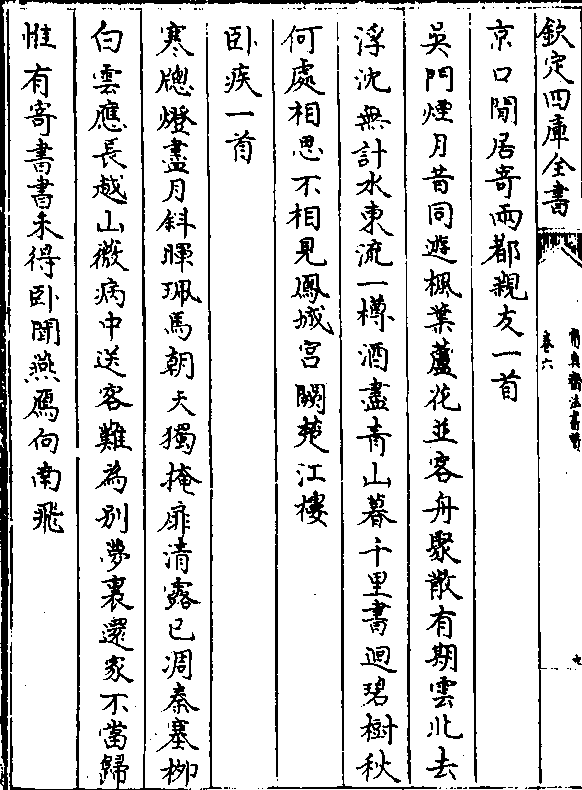 欽定四庫全書
卷六
京口閒居寄兩都親友一首
吳門煙月昔同遊楓葉蘆花並客舟聚散有期雲北去
浮沈無計水東流一樽酒盡青山暮千里書迴碧樹秋
何處相思不相見鳳城宮闕楚江樓
卧疾一首
寒牕燈盡月斜暉珮馬朝天獨掩扉清露已凋秦塞柳
白雲應長越山薇病中送客難為別夢裏還家不當歸
惟有寄書書未得卧聞燕鴈向南飛